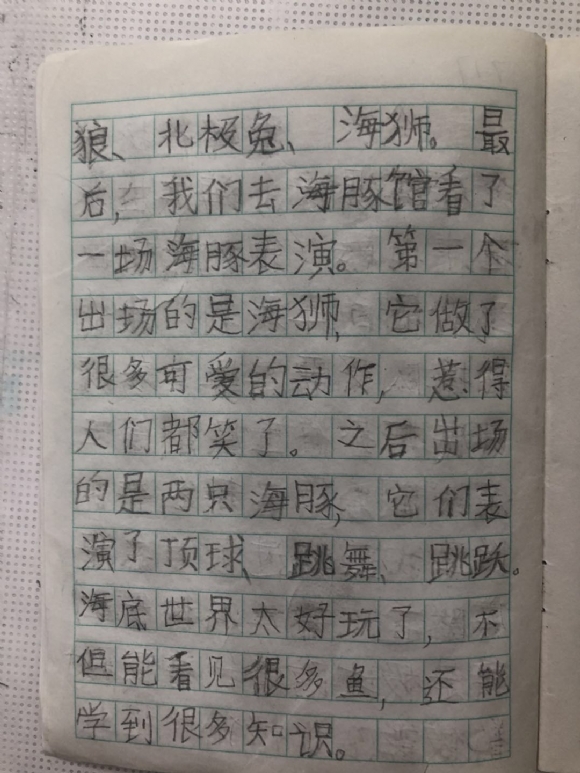 狼、北极兔、海狮。最
后，我们去海豚馆看了
一场海豚表演。第一个
出场的是海狮，它做了
很多可爱的动作，惹得
人们都笑了。之后出场
的是两只海豚，它们表
演了顶球、跳舞、跳跃。
海底世界太好玩了，不
但能看见很多鱼，还能
学到很多知识。